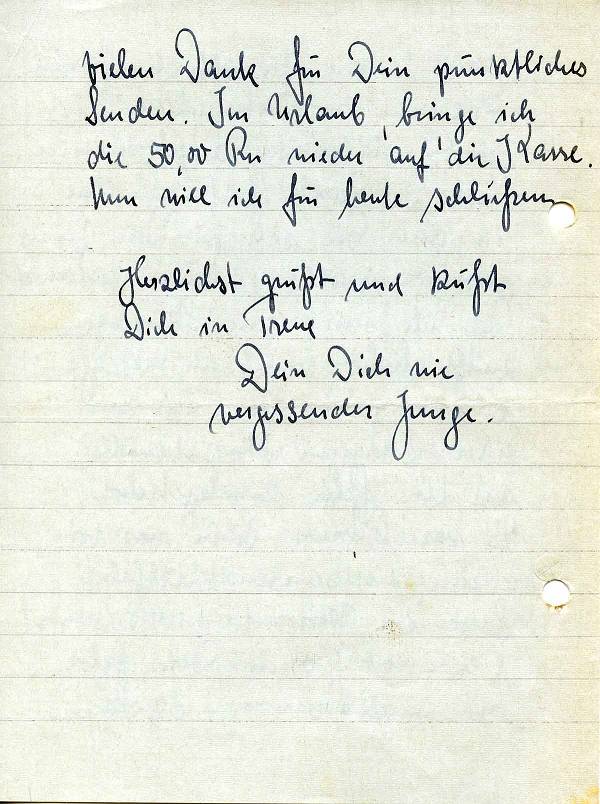 vielen Dank für Dein pünktliches
Senden. Im Urlaub bringe ich
die 50,00 Rm wieder auf die Kasse.
Nun will ich für heute schließen
Herzlichst grüßt und küßt
Dich in Treue
Dein Dich nie
vergessender Junge.